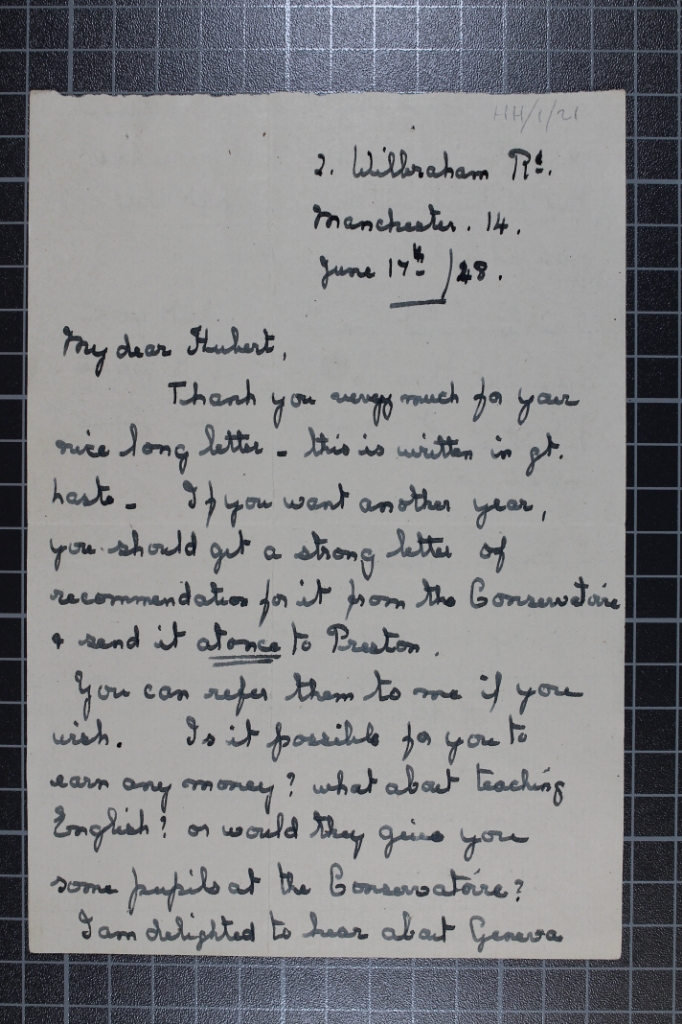 HH/1/21
2. Wilbraham Rd.
Manchester. 14.
June 17th/28.
My dear Hubert,
Thank you very much for your
nice long letter - this is written in gt.
haste - If you want another year,
you should get a strong letter of
recommendation for it from the Conservatoire
& send it at once to Preston.
You can refer them to me if you
wish. Is it possible for you to
earn any money? what about teaching
English? or would they give you
some pupils at the Conservatoire?
I am delighted to hear about Geneva